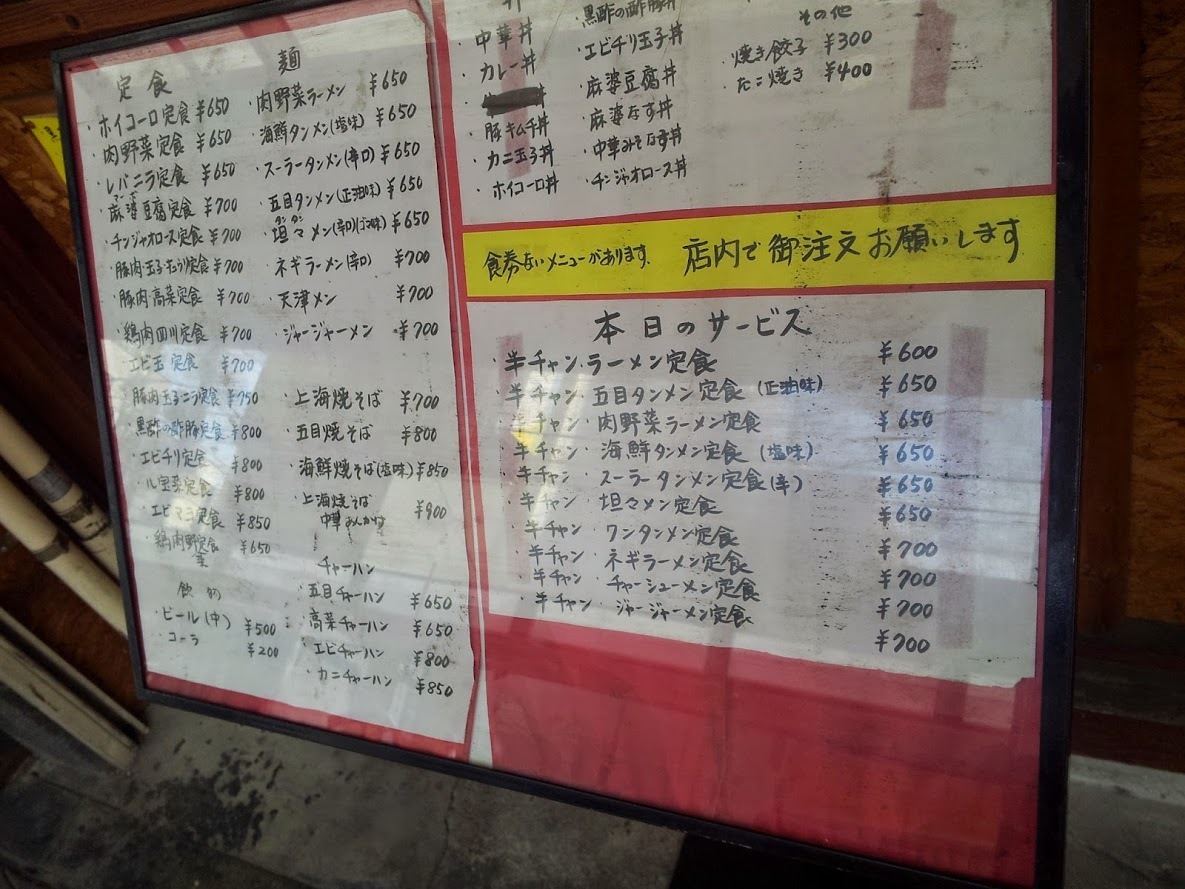 定食
・ホイコーロ定食 ¥650
・肉野菜定食 ¥650
・レバニラ定食 ¥650
・麻婆豆腐定食 ¥700
・チンジャオロース定食 ¥700
・豚肉・玉子・キュウリ定食 ¥700
・豚肉・高菜定食 ¥700
・鶏肉四川定食 ¥700
・エビ玉定食 ¥700
・豚肉玉子ニラ定食 ¥750
・黒酢の酢豚定食 ¥800
・エビチリ定食 ¥800
・八宝菜定食 ¥800
・エビマヨ定食 ¥850
・鶏肉野定食 ¥650
菜
飲物
・ビール(中) ¥500
・コーラ ¥200
麺
・肉野菜ラーメン ¥650
・海鮮タンメン(塩味) ¥650
・スーラータンメン(辛口) ¥650
・五目タンメン(正油味) ¥650
・坦々メン(辛口)(ゴマ味) ¥650
・ネギラーメン(辛口) ¥700
・天津メン ¥700
・ジャージャーメン ¥700
・上海焼そば ¥700
・五目焼そば ¥800
・海鮮焼そば(塩味) ¥850
・上海焼そば
中華あんかけ ¥900
チャーハン
・五目チャーハン ¥650
・高菜チャーハン ¥650
・エビチャーハン ¥800
・カニチャーハン ¥850
丼
・中華丼
・カレー丼
・豚キムチ丼
・カニ玉子丼
・ホイコーロ丼
・黒酢の酢豚丼
・エビチリ玉子丼
・麻婆豆腐丼
・麻婆なす丼
・中華みそなす丼
・チンジャオロース丼
その他
・焼き餃子 ¥300
・たこ焼き ¥400
食券ないメニューがあります。 店内で御注文お願いします
本日のサービス
・半チャン・ラーメン定食 ¥600
・半チャン・五目タンメン定食(正油味) ¥650
・半チャン・肉野菜ラーメン定食 ¥650
・半チャン・海鮮タンメン定食(塩味) ¥650
・半チャン・スーラータンメン定食(辛) ¥650
・半チャン・坦々メン定食 ¥650
・半チャン・ワンタンメン定食 ¥700
・半チャン・ネギラーメン定食 ¥700
・半チャン・チャーシューメン定食 ¥700
・半チャン・ジャージャーメン定食 ¥700